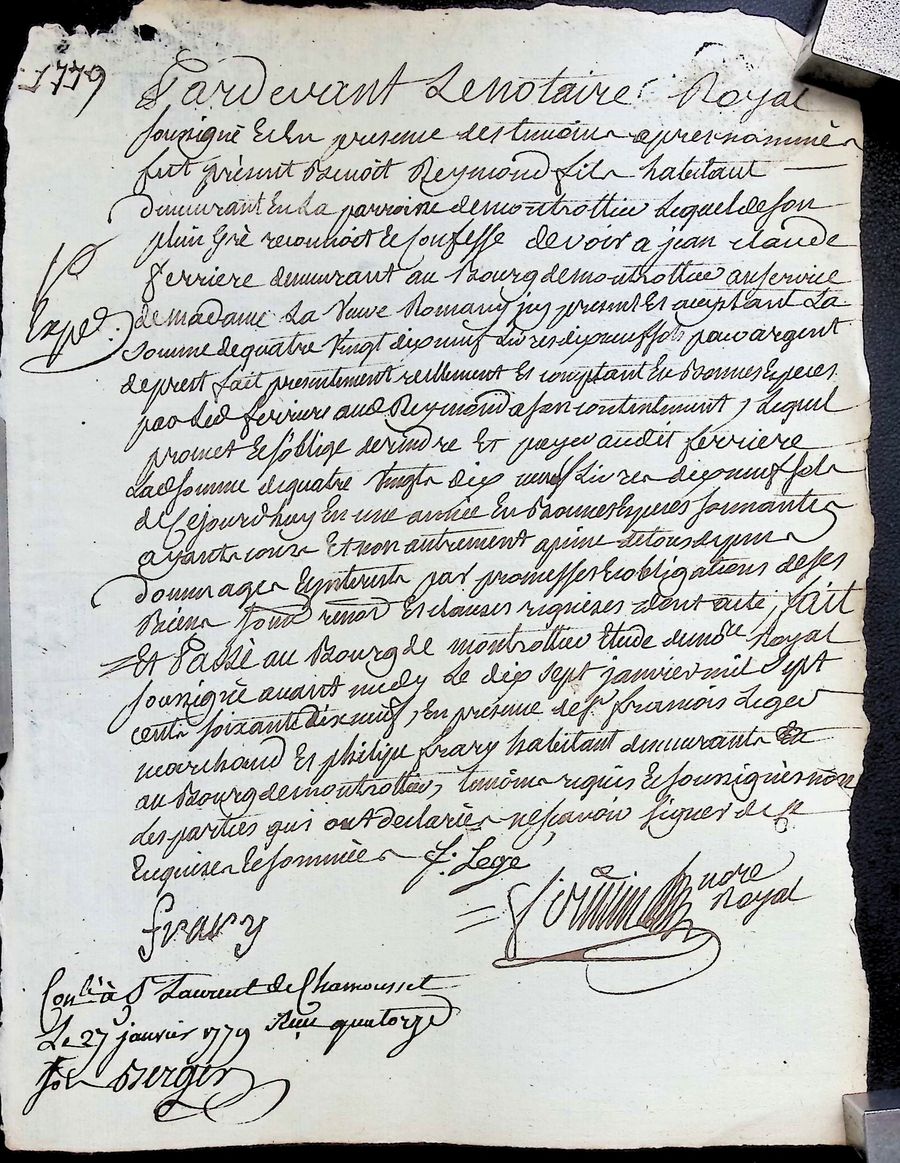 1779
Pardevant Le notaire Royal
sousigné Et En presence des temoins apres nommés
fut présent Benoit Reymond fils habitant
demeurant En La parroisse de montrottier Lequel de son
plein Gré reconnoit Et confesse devoir a jean claude
ferriere demeurant au Bourg de montrottier au service
de madame La veuve Romany icy present Et aceptant La
Exped.
somme de quatre vingt dix neuf Livres dix neuf sols pour argent
de prest fait presentement reellement Et comptant En Bonnes Especes
par Led ferriere aud Reymond a son contentement, Lequel
promet Et s'oblige de rendre Et payer audit ferriere
Lad somme de quatre vingts dix neuf Livres dix neuf sols
de Cejourdhuy En une année En Bonnes Especes sonnantes
ayants cours Et non autrement a peine de tous depens
dommages Eynterests par promesses Et obligations de ses
Biens soum renon Et clauses requises dont acte, fait
Et Passé au Bourg de montrottier Etude du no.re Royal
sousigné avant midy Le dix sept janvier mil sept
cents soixante dix neuf, En presence de sr francois Leger
marchand Et philipe frary habitant demeurants
au Bourg de montrottier, temoins requis Et sousignés non
des parties qui ont declarées ne scavoir signer de ce
Enquises Et sommées
f: Lege
frary
nore
Royal
Conlé à St Laurent de Chamousset
Le 27 janvier 1779 Reçu quatorze
sols Berger